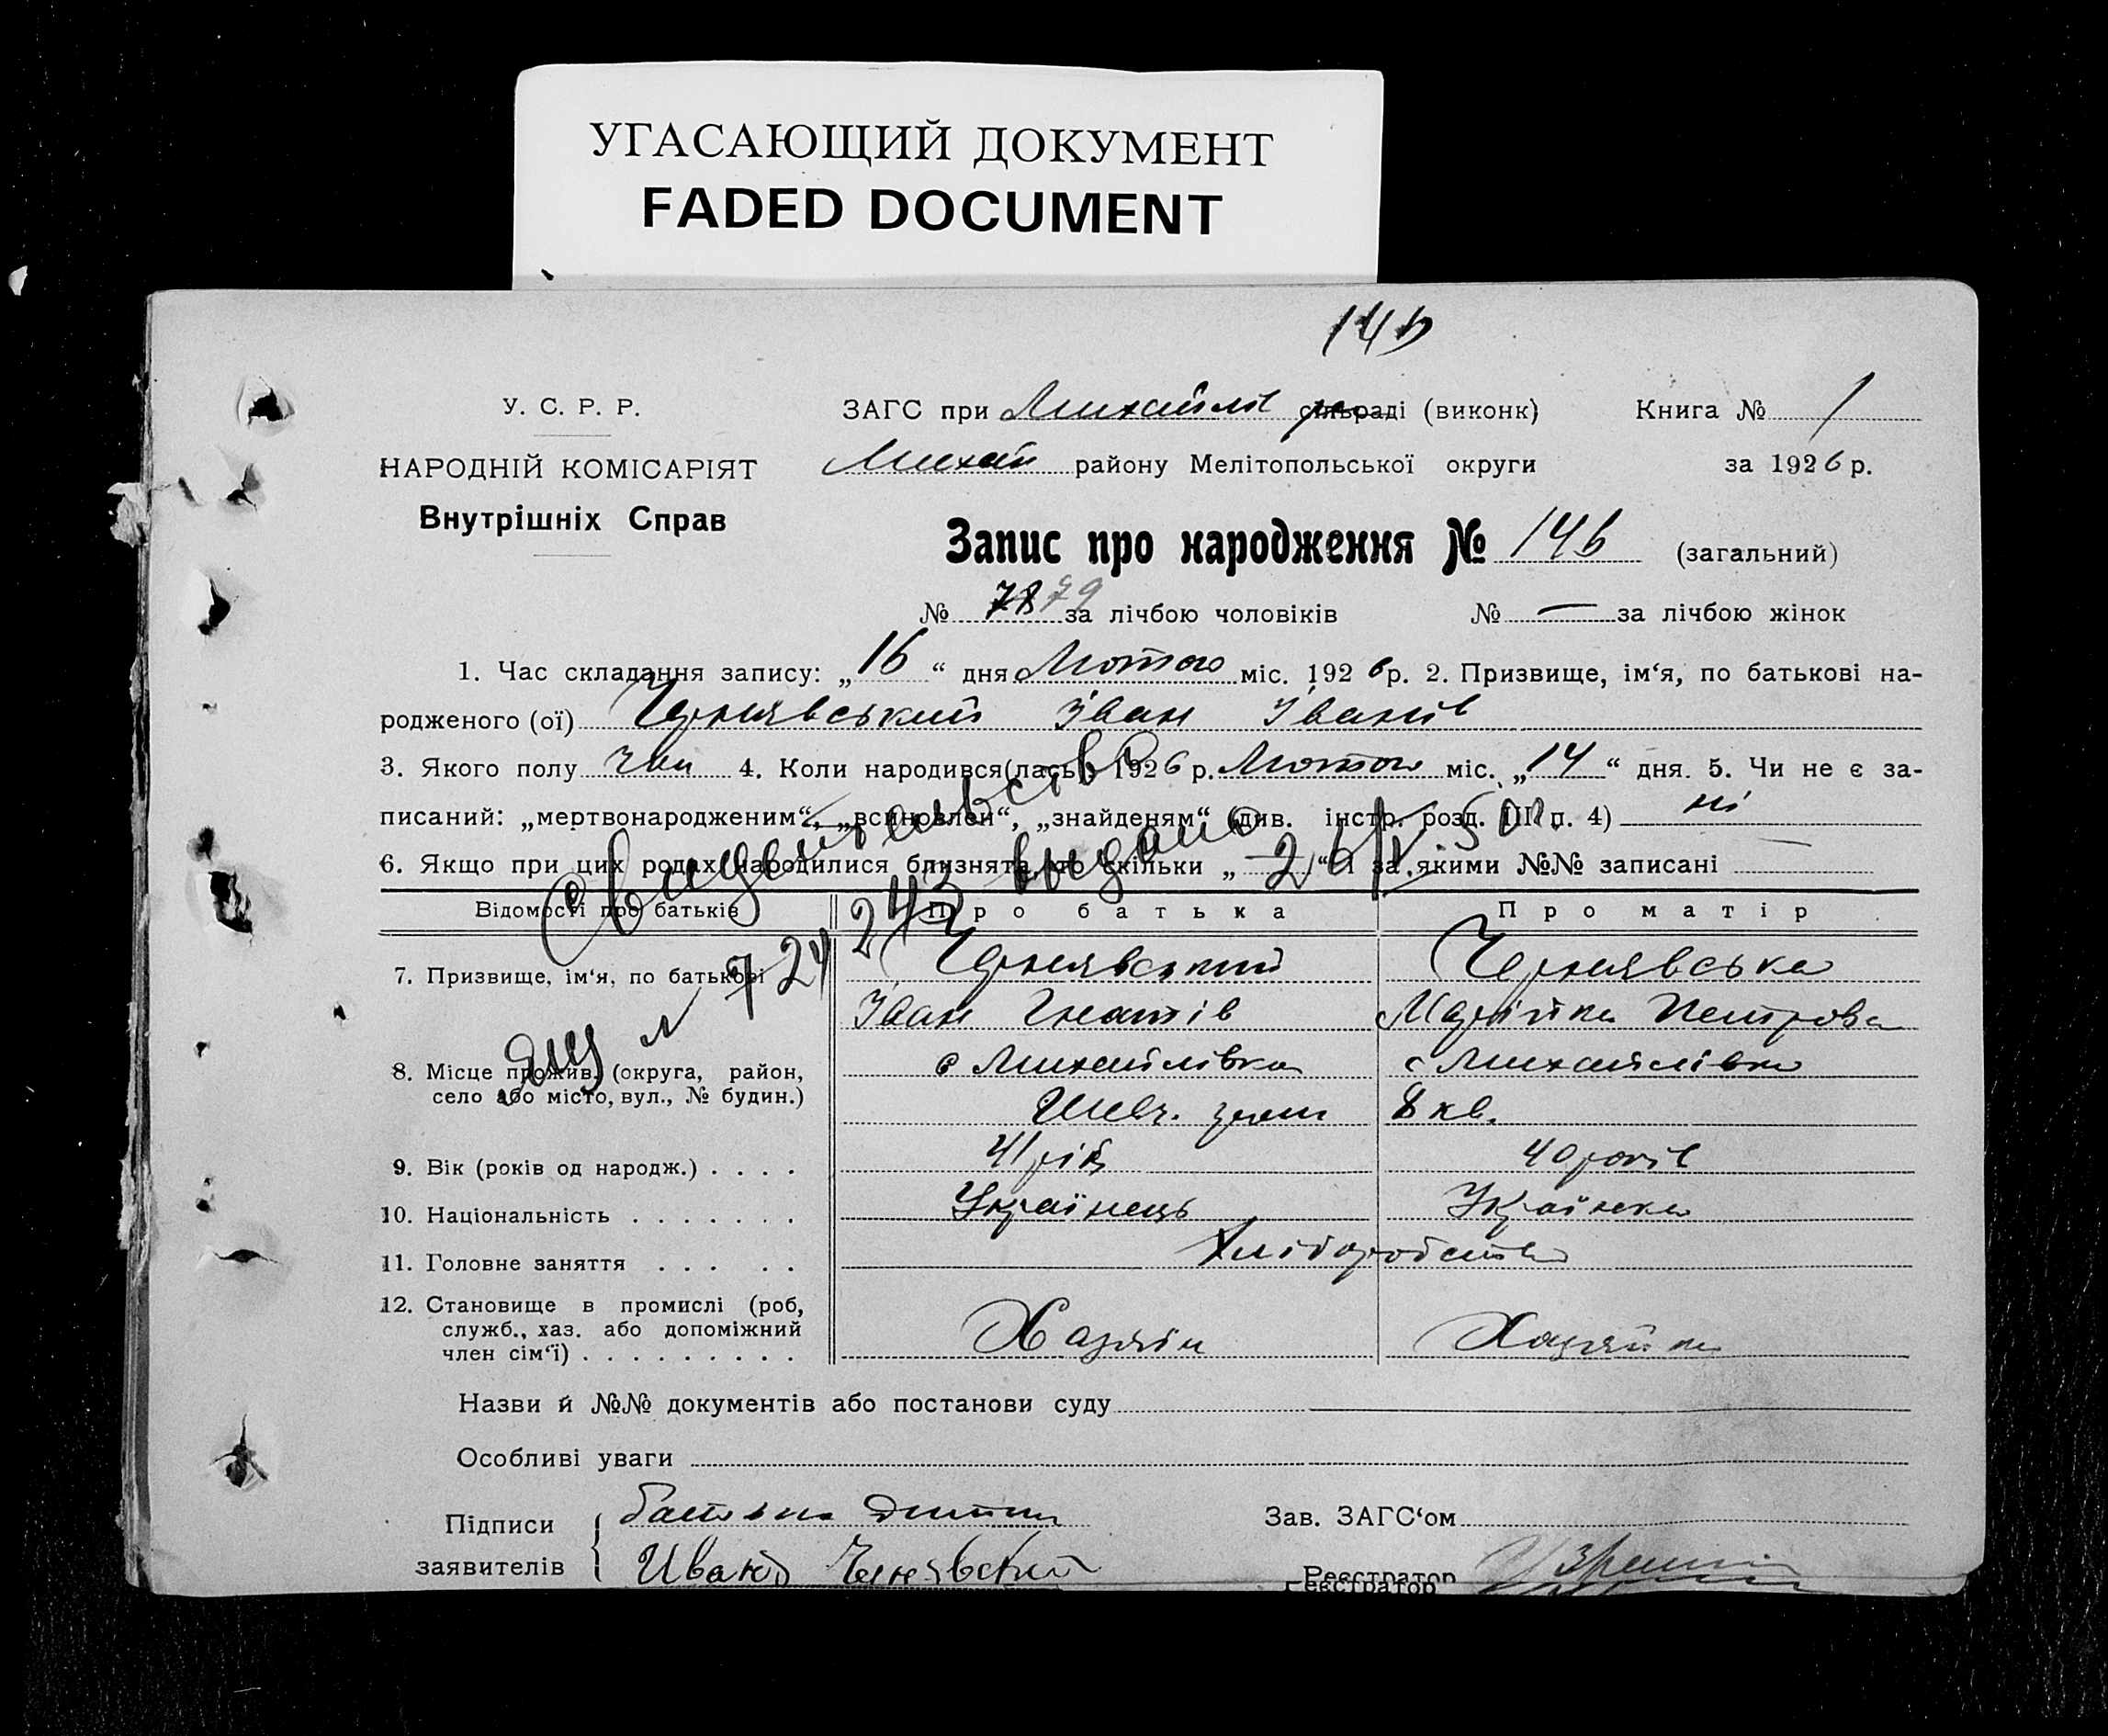 УГАСАЮЩИЙ ДОКУМЕНТ
FADED DOCUMENT
146
У. С. Р. Р.
НАРОДНІЙ КОМІСАРІЯТ
Внутрішніх Справ
ЗАГС при Михайлів сільраді (виконк)
Книга № 1
Михай району Мелітопольської округи
за 1926 р.
Запис про народження № 146 (загальний)
№ 78 79 за лічбою чоловіків № — за лічбою жінок
1. Час складання запису: „16“ дня Лютого міс. 1926 р. 2. Призвище, ім‘я, по батькові на-
родженого (ої) Чернявський Іван Іванів
3. Якого полу чол 4. Коли народився(лась) 1926 р. Лютого міс. „14“ дня. 5. Чи не є за-
писаний: „мертвонародженим“, „всиновлен“, „знайденям“ (див. інстр. розд. III п. 4) ні
6. Якщо при цих родах народилися близнята, то скільки „—“ і за якими №№ записані —
Свидетельство
243 выдано
№ 724
Відомості про батьків
Про батька
Про матір
7. Призвище, ім‘я, по батькові
Чернявський
Іван Гнатів
Чернявська
Петрова
8. Місце прожив. (округа, район,
село або місто, вул., № будин.)
с Михайлівка
Шевч. гром
с Михайлівка
8 кв.
9. Вік (років од народж.) . . . .
41 рік
40 років
10. Національність . . . . . . .
Українець
Українка
11. Головне заняття . . . . .
Хліборобство
12. Становище в промислі (роб,
служб., хаз. або допоміжний
член сім‘ї) . . . . . . . . .
Хазяїн
Хазяйка
Назви й №№ документів або постанови суду
Особливі уваги
Підписи
заявителів
батько дитини
Иван Чернявский
Зав. ЗАГС‘ом
Реєстратор
Реєстратор